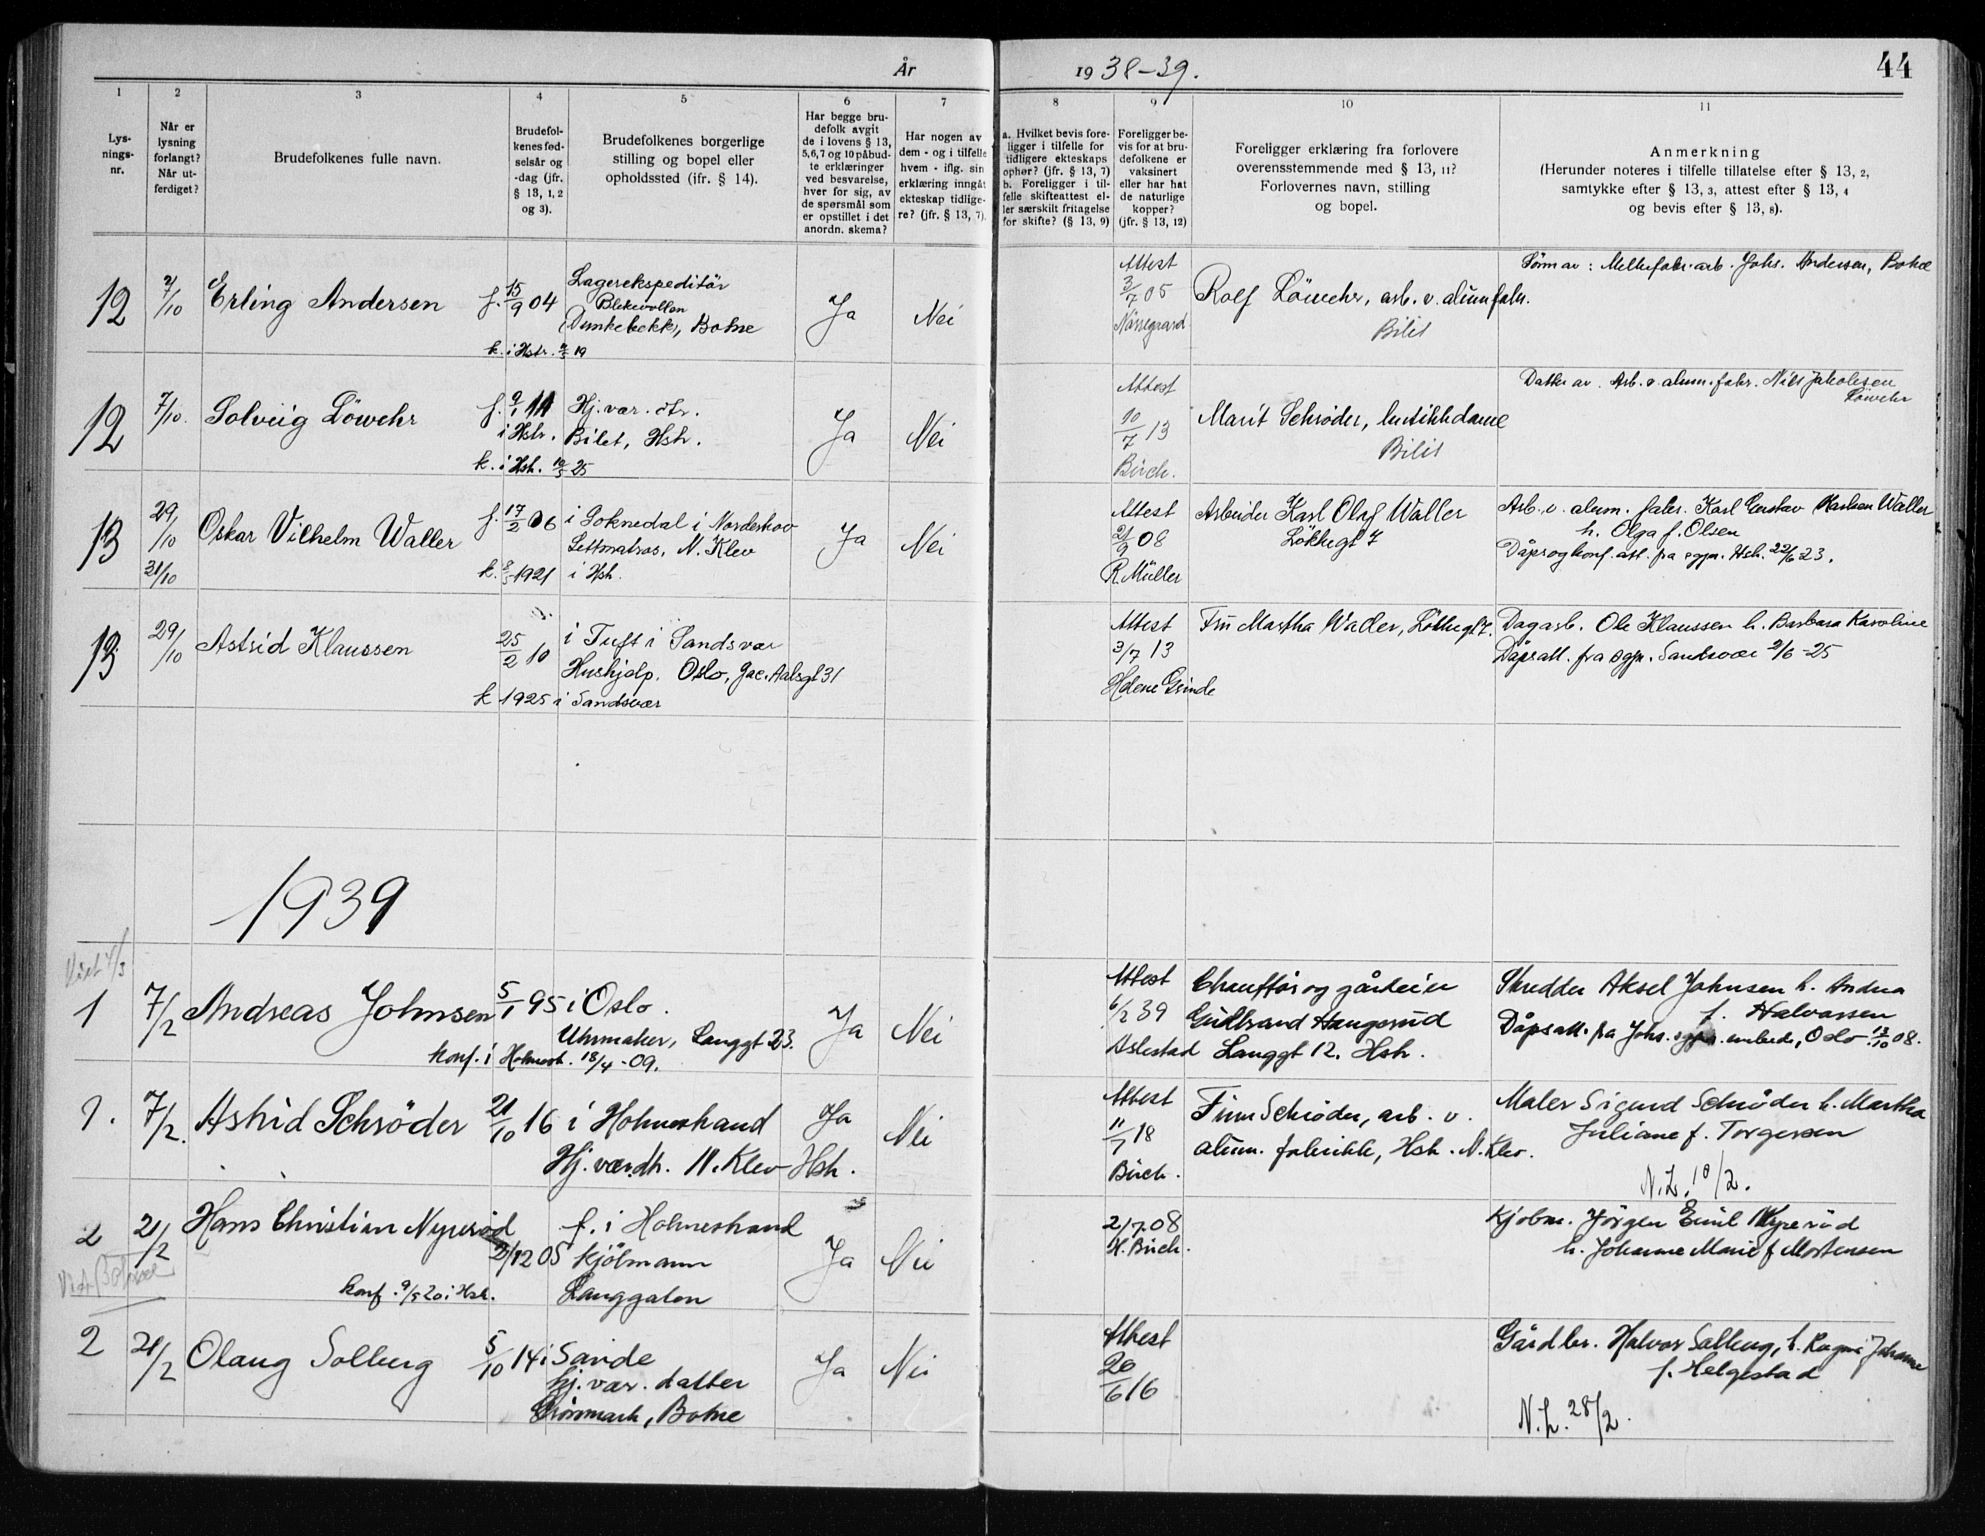 År 1938-39.
44
1
2
3
4
5
6
7
8
9
10
11
Lys-
nings-
nr.
Når er
lysning
forlangt?
Når ut-
ferdiget?
Brudefolkenes fulle navn.
Brudefol-
kenes fød-
selsår og
-dag (jfr.
§ 13, 1, 2
og 3).
Brudefolkenes borgerlige
stilling og bopel eller
opholdssted (ifr. § 14).
Har begge bru-
defolk avgit
de i lovens § 13,
5,6,7 og 10 påbud-
te erklæringer
ved besvarelse,
hver for sig, av
de spørsmål som
er opstillet i det
anordn. skema?
Har nogen av
dem - og i tilfelle
hvem - iflg. sin
erklæring inngåt
ekteskap tidlige-
re? (jfr. § 13, 7).
a. Hvilket bevis fore-
ligger i tilfelle for
tidligere ekteskaps
ophør? (jfr. § 13, 7)
b. Foreligger i til-
felle skifteattest el-
ler særskilt fritagelse
for skifte? (§ 13, 9)
Foreligger be-
vis for at bru-
defolkene er
vaksinert
eller har hat
de naturlige
kopper?
(jfr. § 13, 12)
Foreligger erklæring fra forlovere
overensstemmende med § 13, 11?
Forlovernes navn, stilling
og bopel.
Anmerkning
(Herunder noteres i tilfelle tillatelse efter § 13, 2,
samtykke efter § 13, 3, attest efter § 13, 4
og bevis efter § 13, 8).
12
7/10
Erling Andersen
f. 15/9 04
Lagerekspeditör
Dunkebekk, Botne
k. i Hstr.
19
Ja
Nei
Attest
3/7 05
Rolf Löwehr, arb. v. alum fabr.
Bilit
Sönn av: Melkefabr. arb. Johs. Andersen, Botne
12
7/10.
Solveig Löwehr
f. 9/1 11
i Hstr.
k. i Hst. 10/5 25
Hj. vær. dtr.
Bilet, Hstr.
Ja
Nei
Attest
10/7 13
Birch.
Marit Schrøder, butikkdame
Bilit
Datter av. Arb. v. alum. fabr. Nils Jakobsen
Löwehr
13
29/10
31/10
Oskar Vilhelm Waller
f. 17/2 06
k. 8/5 1921
i Soknedal i Norderhov
Lettmatros, N. Klev
i Hst.
Ja
Nei
Attest
21/9 08
R. Müller
Arbeider Karl Olaf Waller
Lökkegt 7
Arb. v. alum. fabr. Karl Gustav Karlsen Waller
h. Olga f. Olsen
Dåps og konf. att. fra sgpr. Hst. 22/6 23.
13
29/10
Astrid Klaussen
25/2 10
k 1925 i Sandsvær
i Tuft i Sandsvær
Hushjelp. Oslo, Jac. Aalsgt 31
Attest
3/7 13
Helene Grinde
Fru Martha Waller, Lökkegt 7.
Dagarb. Ole Klaussen h. Barbara Karoline
Dåpsatt. fra sgpr. Sandsvær 2/6 -25
1939
1
7/2
Andreas Johnsen
5/1 95
konf. i Holmestr. 18/4 -09.
i Oslo.
Uhrmaker, Langgt 23.
Ja
Nei
Attest
6/2 39
Aslestad
Chauffør og gårdeier
Gulbrand Haugerud
Langgt 12. Hst.
Skredder Aksel Johnsen h. Andrea
f. Halvorsen
Dåpsatt. fra Johs. sgpr. embede, Oslo 13/10 08.
1.
7/2.
Astrid Schröder
21/10 16
i Holmestrand
Hj. værdt. N. Klev Hst.
Ja
Nei
Attest
11/7 18
Birch.
Finn Schrøder, arb. v.
alum. fabrikk, Hst. N. Klev.
Maler Sigurd Schrøder h. Martha
Juliane f. Torgersen
N.L. 10/2.
2
21/2
Hans Christian Nyrerød
2/12 05
konf. 9/5 20 i Hst.
f. i Holmestrand
kjöbmann
Langgaten
Ja
Nei
2/7.08
H. Birch.
Kjøbm. Jörgen Emil Nyrerød
h. Johanne Marie f Mortensen
2
21/2
Olaug Solberg
5/10 14
i Sande
hj. vær. datter
Grönmark, Botne
Ja
Nei
Attest
20/6 16
Gårdbr. Halvor Solberg, h. Ragna Johanne
f. Helgestad
N.L. 28/2.